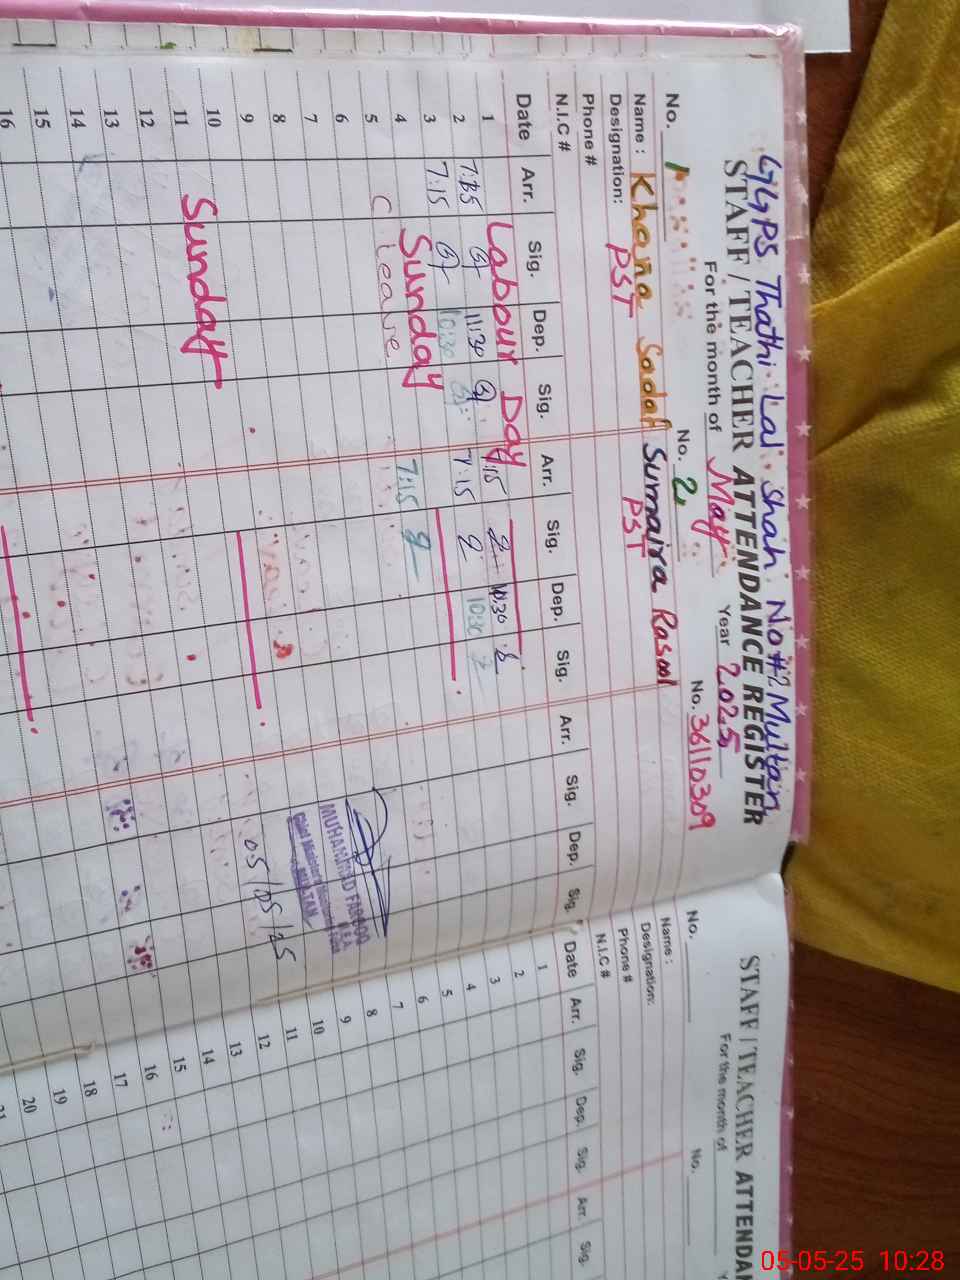 GGPS Thathi Lal Shah No#2 Multan
STAFF / TEACHER ATTENDANCE REGISTER
For the month of May Year 2025
No. 1 No. 2 No. 36110309
Name : Khana Sadaf Sumaira Rasool
Designation: PST PST
Phone #
N.I.C #
Date Arr. Sig. Dep. Sig. Arr. Sig. Dep. Sig. Arr. Sig. Dep. Sig.
1 Labour Day
2 11:30 7:15 10:30
3 7:15 10:30 7:15 10:30
4 Sunday
5 C leave 7:15
6
7
8
9
10
11 Sunday
12
13
14
15
16
MUHAMMAD FAROOQ
M.E.A
MULTAN
05/05/25
STAFF / TEACHER ATTENDAN
For the month of
No. No.
Name :
Designation:
Phone #
N.I.C #
Date Arr. Sig. Dep. Sig. Arr. Sig.
1
2
3
4
5
6
7
8
9
10
11
12
13
14
15
16
17
18
19
20
21
05-05-25 10:28